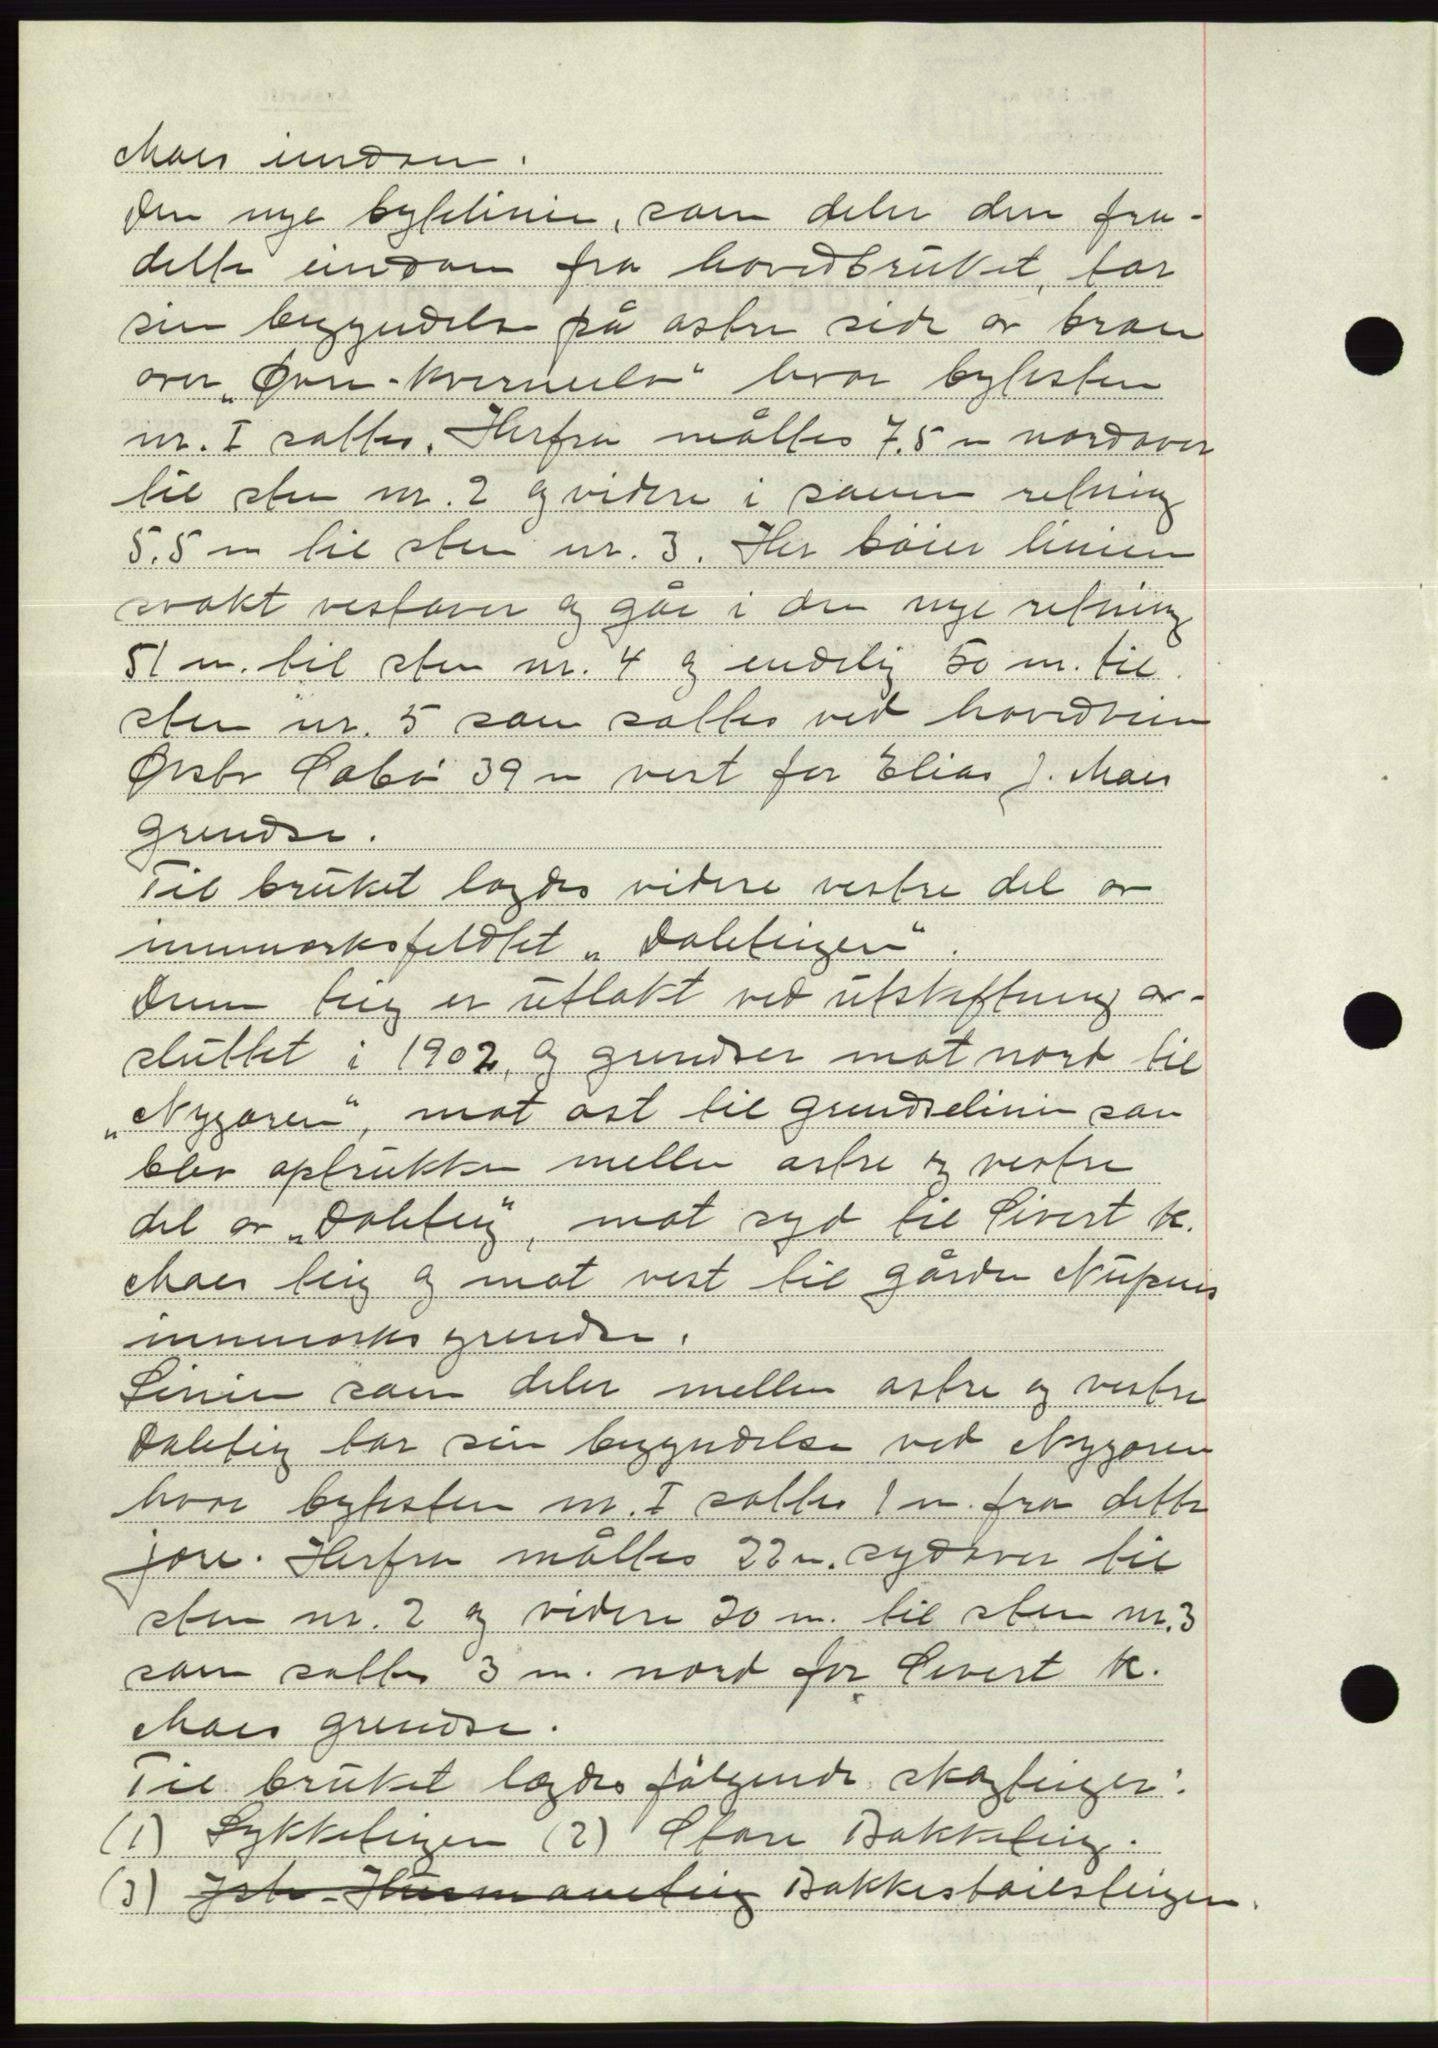 Moes inndan.
Den nye bytelinie, som deler den fra-
delte inndan fra hovedbruket, tar
sin begyndelse på østre side av broen
over „Øvre-Kvernelv" hvor bytesten
nr. I sattes. Herfra måltes 7.5 m nordover
til sten nr. 2 og videre i samme retning
5.5 m til sten nr. 3. Her bøier linien
svakt vestover og går i den nye retning
51 m. til sten nr. 4 og endelig 50 m. til
sten nr. 5 som sattes ved hovedveien
Ørsta Sæbø 39 m vest for Elias J. Moes
grendse.
Til bruket lagdes videre vestre del av
innmarksfeldtet „Dalteigen".
Denne teig er utlakt ved utskiftning av-
sluttet i 1902, og grendser mot nord til
„Nygøren", mot øst til grendselinie som
blev optrukken mellem østre og vestre
del av „Dalteig", mot syd til Sivert K.
Moes teig og mot vest til gården Nupens
innmarks grendse.
Linien som deler mellem østre og vestre
Dalteig tar sin begyndelse ved Nygøren
hvor bytesten nr. I sattes 1 m. fra dette
jore. Herfra måltes 22 m. sydover til
sten nr. 2 og videre 20 m. til sten nr. 3
som sattes 3 m. nord for Sivert K.
Moes grendse.
Til bruket lagdes følgende skogteiger:
(1) Lykkjeteigen (2) Store Bakketeig.
(3) Yste-Husmannsteig Bakkestøilsteigen.